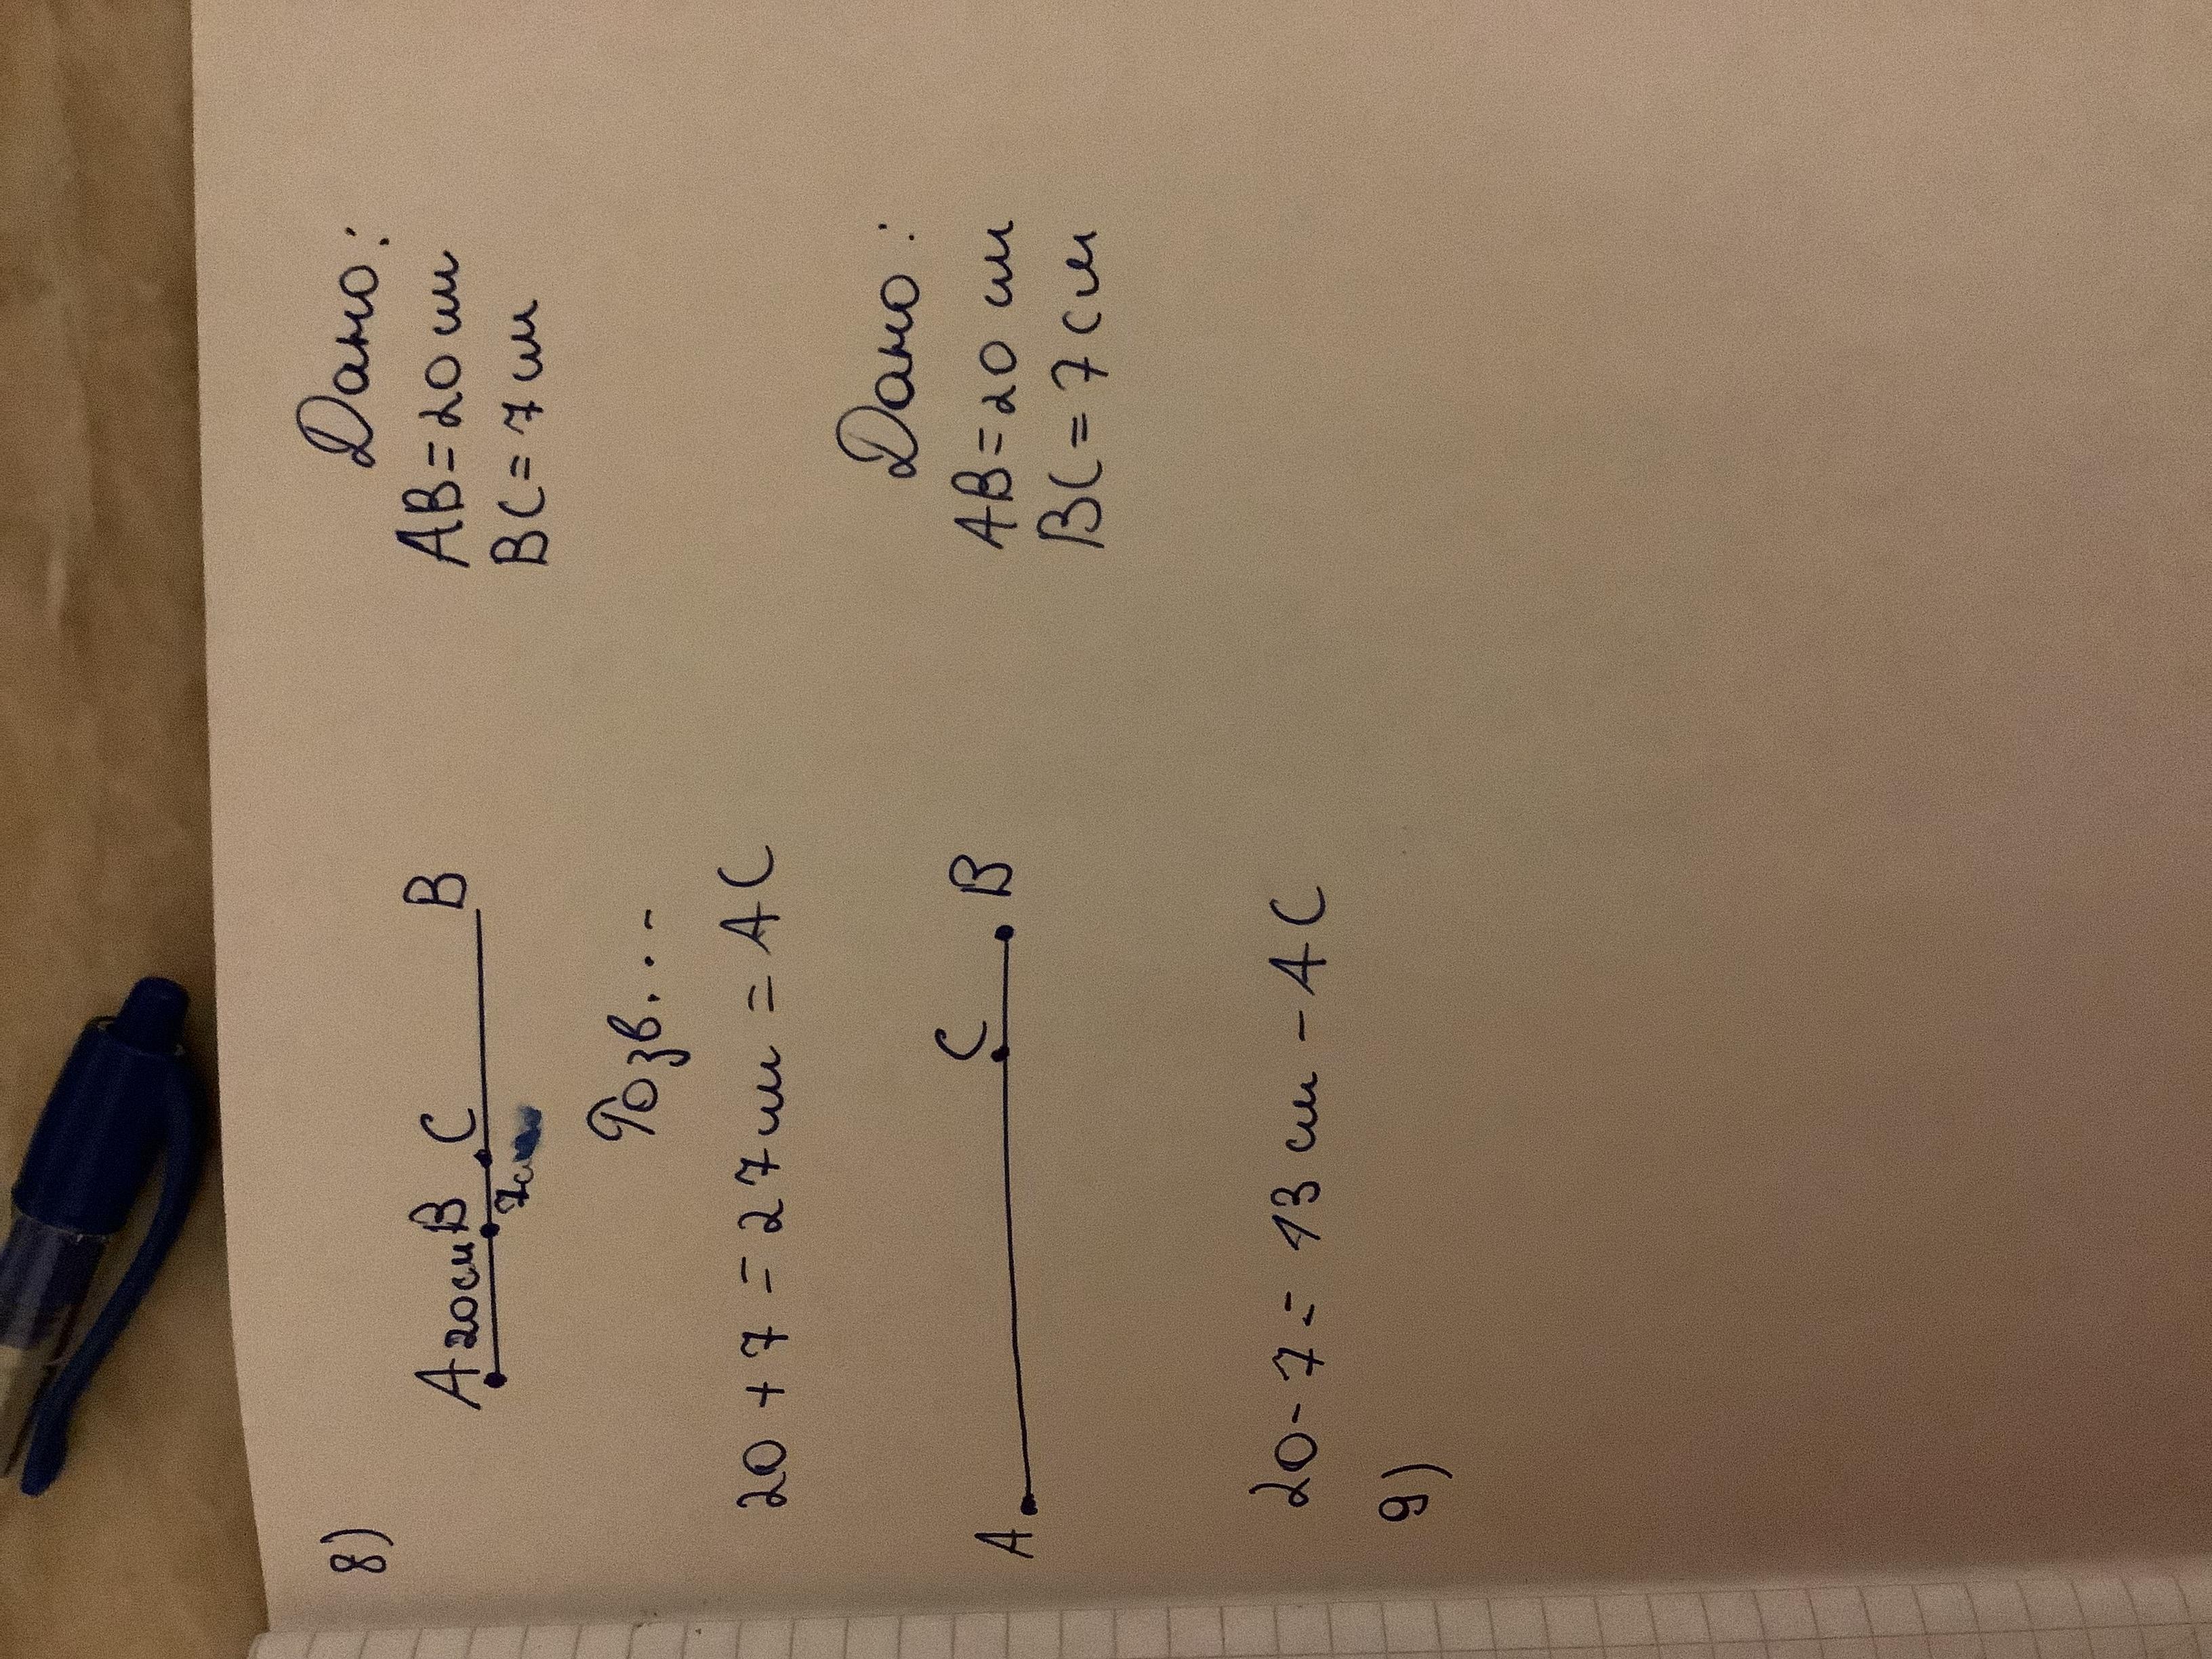 8)
A 20см B C B
7см
Дано:
AB=20 см
BC=7 см
Розв...-
20+7=27 см = AC
A C B
Дано:
AB=20 см
BC=7 см
20-7=13 см - AC
9)